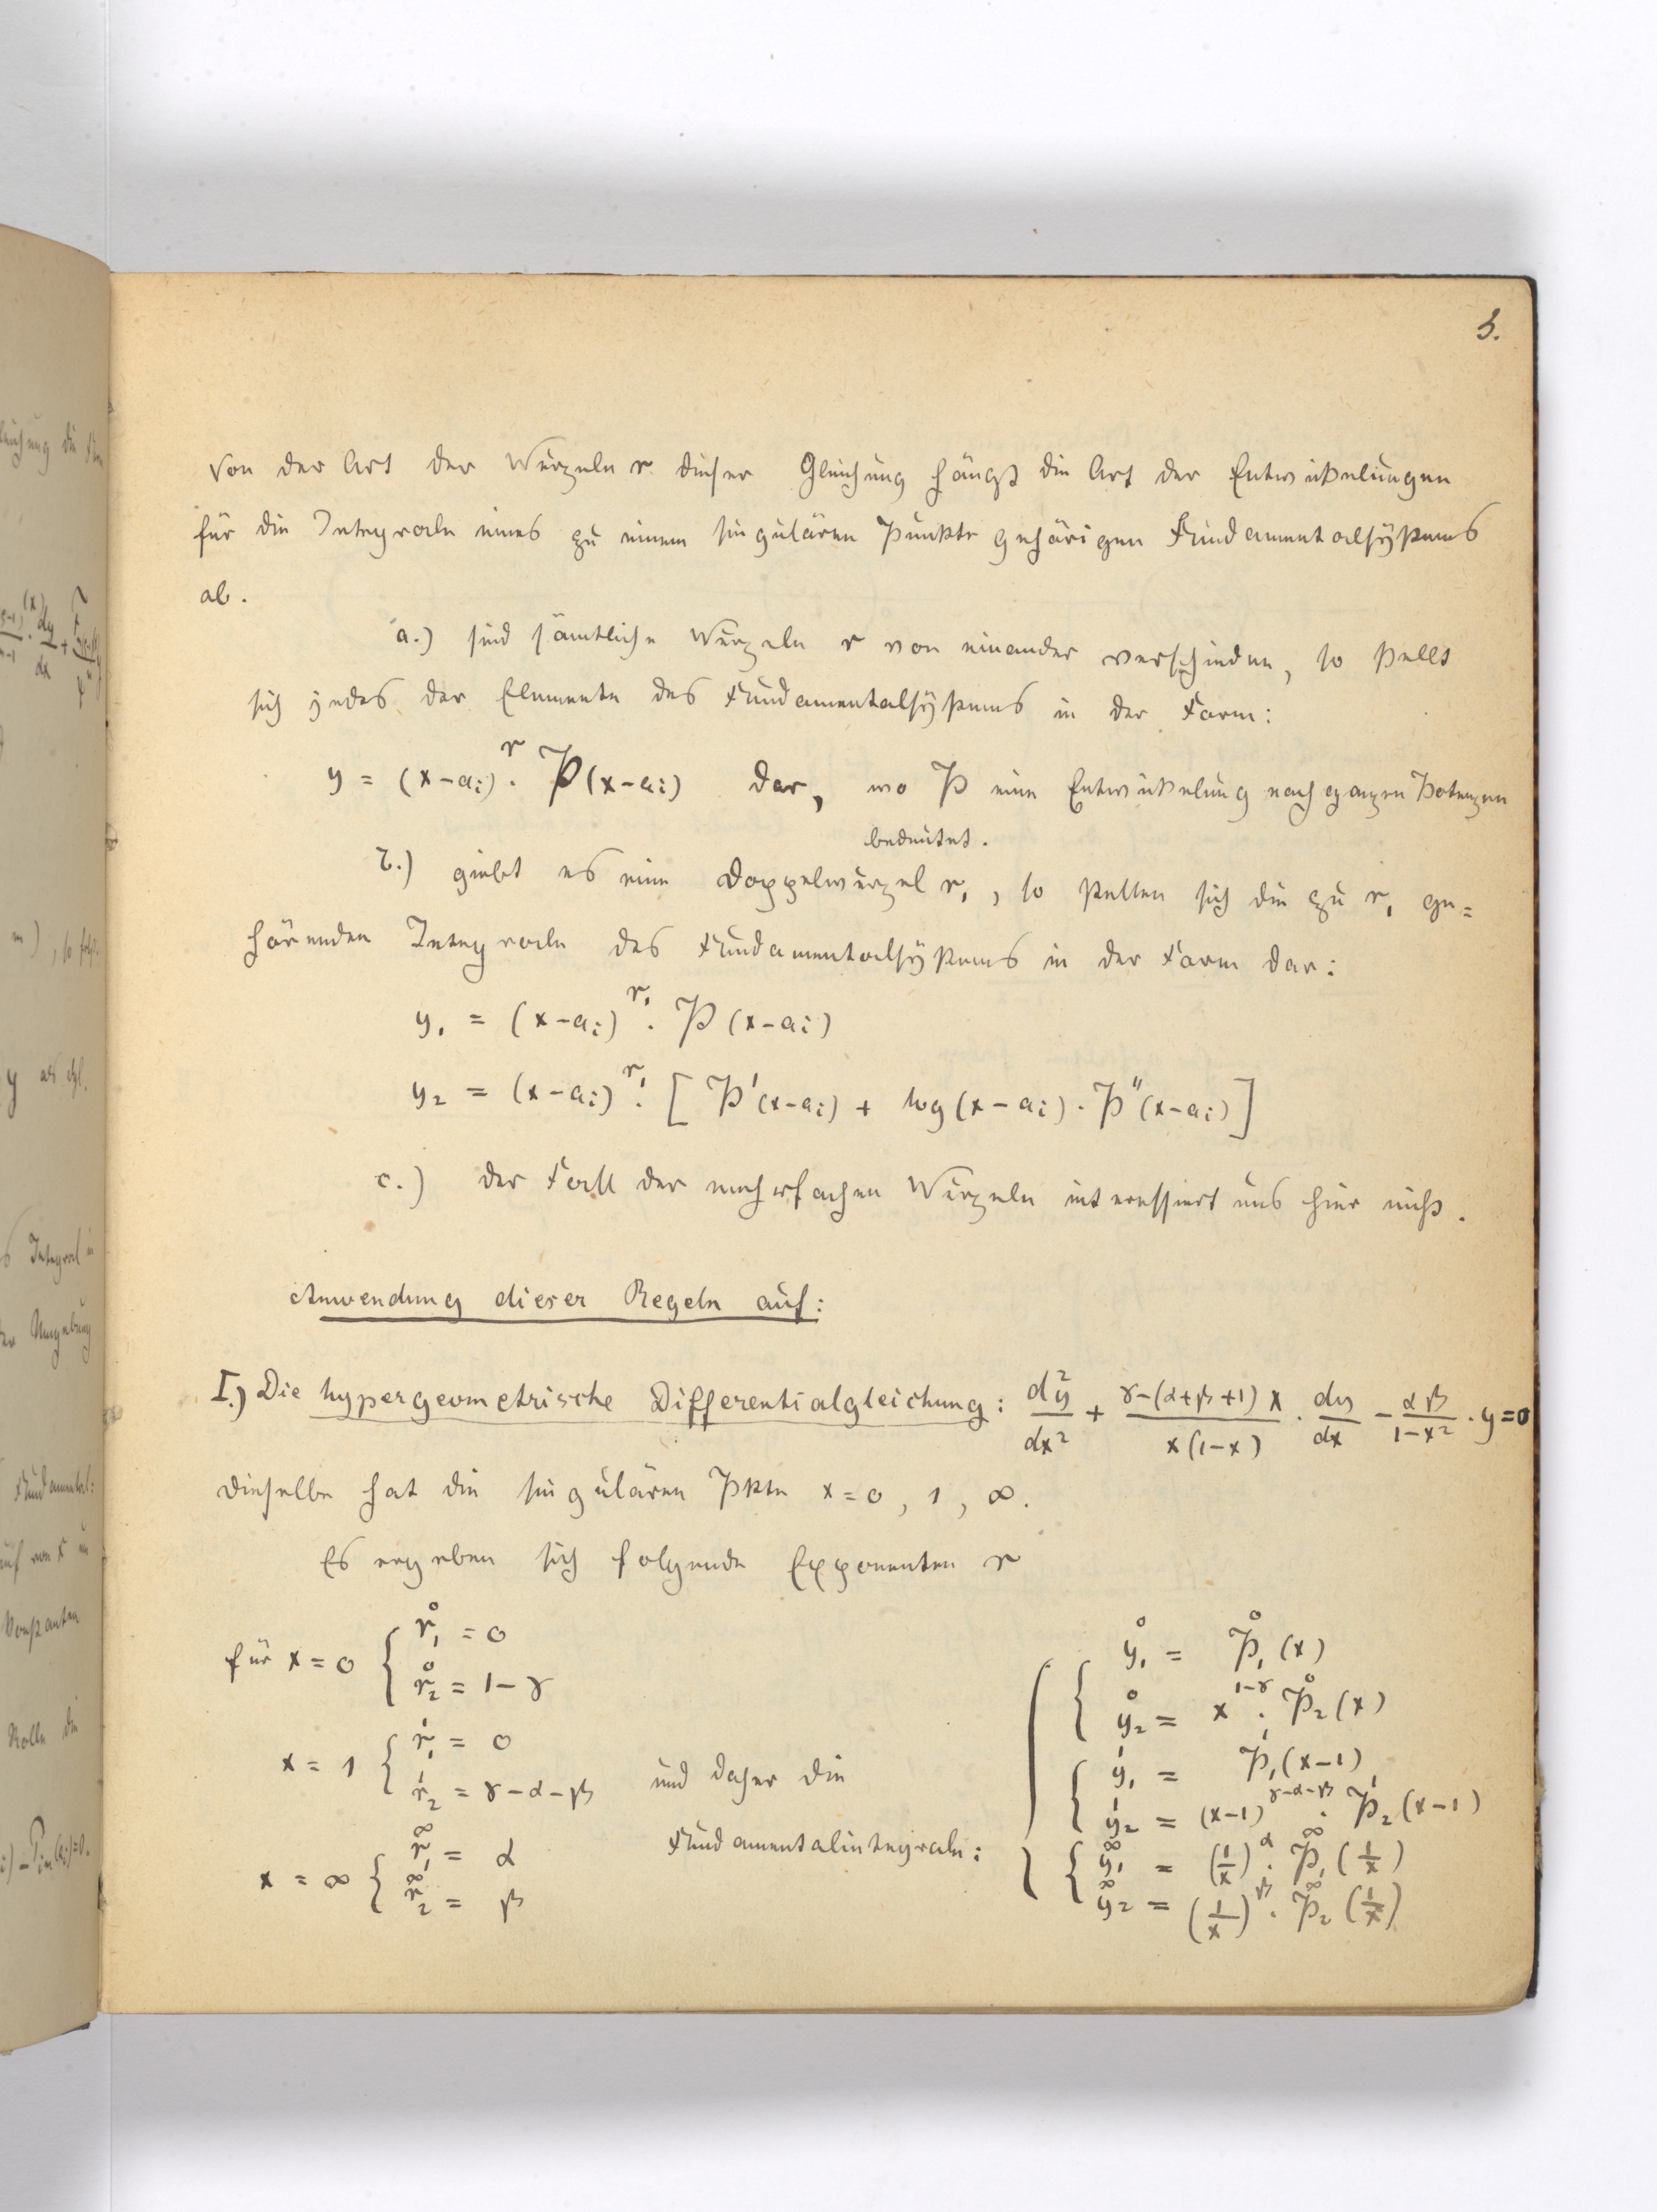 3.
Von der Art der Wurzeln r dieser Gleichung hängt die Art der Entwickelungen
für die Integrale eines zu einem singulären Punkte gehörigen Fundamentalsystems
ab.
a.) sind sämtliche Wurzeln r von einander verschieden, so stellt
sich jedes der Elemente des Fundamentalsystems in der Form:
y = (x-aᵢ)^r · P(x-aᵢ) dar, wo P eine Entwickelung nach ganzen Potenzen
bedeutet.
b.) giebt es eine Doppelwurzel r₁, so stellen sich die zu r₁ ge=
hörenden Integrale des Fundamentalsystems in der Form dar:
y₁ = (x-aᵢ)^r₁ · P(x-aᵢ)
y₂ = (x-aᵢ)^r₁ · [P'(x-aᵢ) + log(x-aᵢ) · P''(x-aᵢ)]
c.) der Fall der mehrfachen Wurzeln interessiert uns hier nicht.
Anwendung dieser Regeln auf:
I.) Die hypergeometrische Differentialgleichung: d²y/dx² + (γ-(α+β+1)x)/(x(1-x)) · dy/dx - αβ/(1-x²) · y = 0
dieselbe hat die singulären Pkte x = 0, 1, ∞.
Es ergeben sich folgende Exponenten r
für x = 0 { r₁⁰ = 0
r₂⁰ = 1-γ
x = 1 { r₁¹ = 0
r₂¹ = γ-α-β
x = ∞ { r₁^∞ = α
r₂^∞ = β
und daher die
Fundamentalintegrale:
{ y₁⁰ = P₁⁰(x)
y₂⁰ = x^(1-γ) · P₂⁰(x)
{ y₁¹ = P₁¹(x-1)
y₂¹ = (x-1)^(γ-α-β) · P₂¹(x-1)
{ y₁^∞ = (1/x)^α · P₁^∞(1/x)
y₂^∞ = (1/x)^β · P₂^∞(1/x)